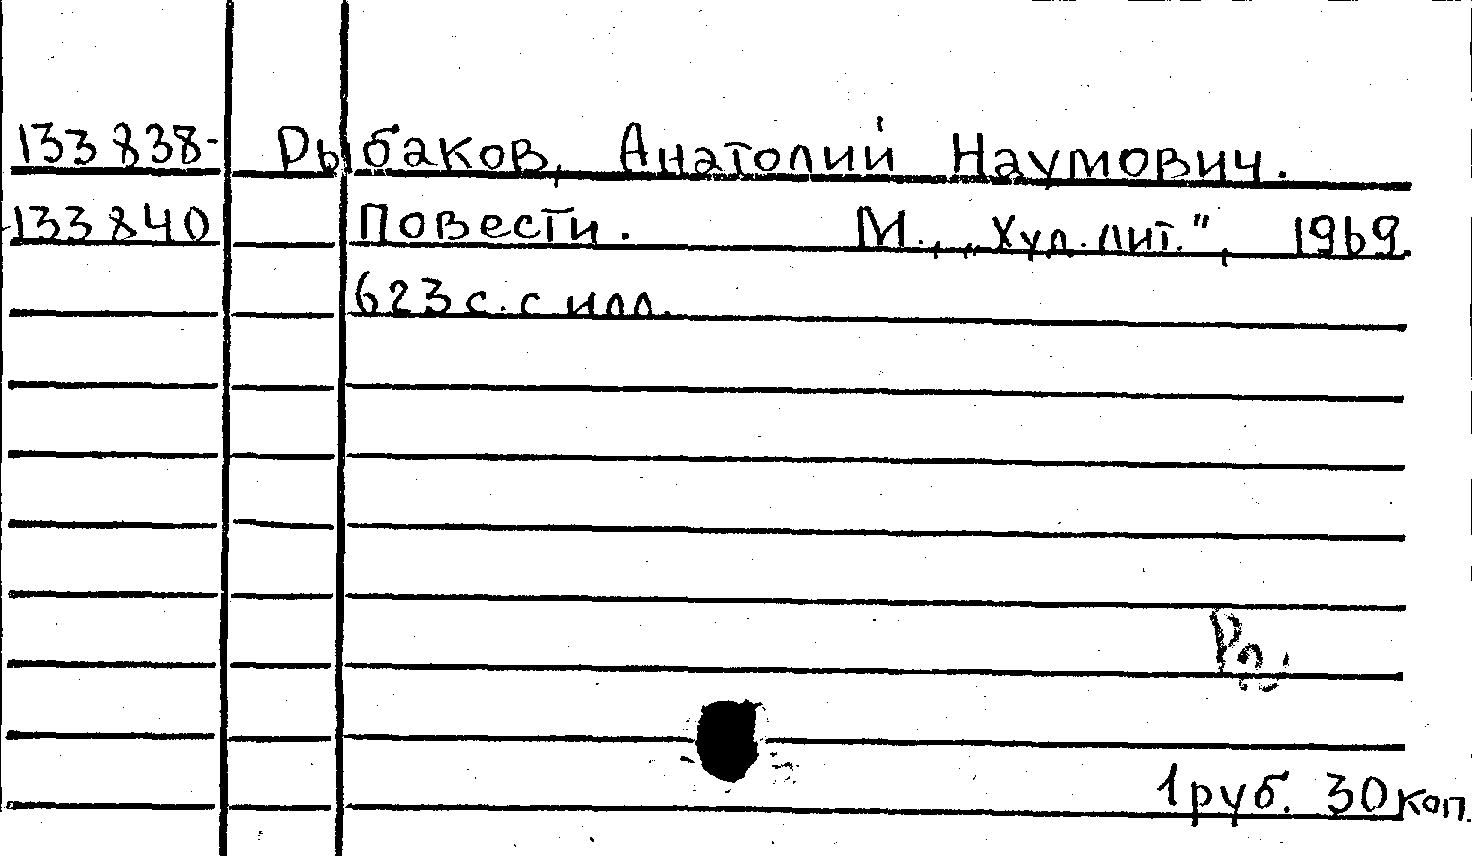 133 838- Рыбаков, Анатолий Наумович.
133 840 Повести. М., „Худ. лит.", 1969.
623 с. с илл.
1 руб. 30 коп.